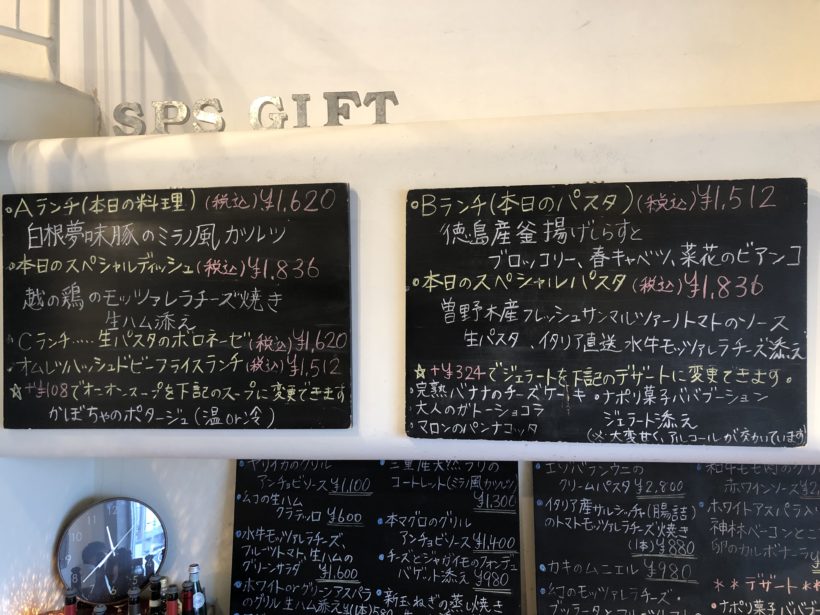 SPS GIFT
・Aランチ(本日の料理)(税込)¥1,620
白根夢味豚のミラノ風カツレツ
・本日のスペシャルディッシュ(税込)¥1,836
越の鶏のモッツァレラチーズ焼き
生ハム添え
Cランチ‥‥生パスタのボロネーゼ(税込)¥1,620
・オムレツハッシュドビーフライスランチ(税込)¥1,512
☆+¥108でオニオンスープを下記のスープに変更できます
かぼちゃのポタージュ(温or冷)
・Bランチ(本日のパスタ)(税込)¥1,512
徳島産釜揚げしらすと
ブロッコリー、春キャベツ、菜花のビアンコ
・本日のスペシャルパスタ(税込)¥1,836
曽野木産フレッシュサンマルツァーノトマトのソース
生パスタ、イタリア直送水牛モッツァレラチーズ添え
☆+¥324でジェラートを下記のデザートに変更できます。
・完熟バナナのチーズケーキ
・大人のガトーショコラ
・マロンのパンナコッタ
・ナポリ菓子ババブーション
ジェラート添え
(※大変甘く、アルコールが効いています)
ヤリイカのグリル
アンチョビソース ¥1,100
の生ハム
クラテッロ ¥600
・水牛モッツァレラチーズ、
フルーツトマト、生ハムの
グリーンサラダ ¥1,600
・ホワイトorグリーンアスパラ
のグリル 生ハム添え 1(本)580
三重産天然ブリの
コートレット(ミラノ風カツレツ)
¥1,300
・本マグロのグリル
アンチョビソース ¥1,400
・チーズとジャガイモのフォンデュ
バゲット添え ¥980
・新玉ねぎの蒸し焼き
クリームパスタ ¥2,800
・イタリア産サルシッチャ(腸詰)
のトマトモッツァレラチーズ焼き
(1本)¥880
・カキのムニエル ¥980
のモッツァレラチーズ・
和牛モモ肉のグリ
赤ワインソース ¥2
・ホワイトアスパラ入り
神林ベーコンとこ
卵のカルボナーラ
**デザート**
・ナポリ菓子ババ